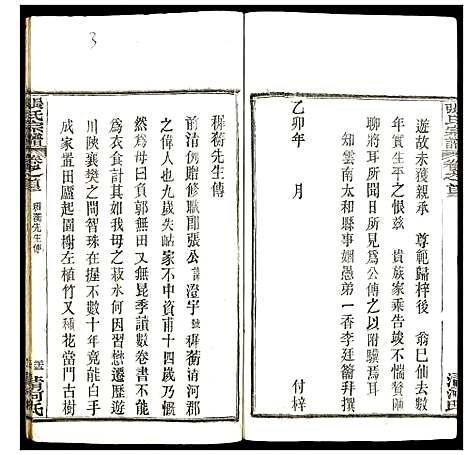 張氏宗譜
遊故未獲親承　尊範歸梓後　翁已仙去數
年實生平之恨茲　貴族家乘告竣不憾贊陋
聊將耳所聞目所見為公傳之以附驥焉耳
知雲南太和縣事姻愚弟一香李廷簫拜撰
乙卯年　月　付梓
清河氏
穉蘅先生傳
前清例贈修職郎張公諱澄宇號穉蘅清河郡
之偉人也九歲失怙家不中資甫十四歲乃慨
然為母曰負郭無田又無昆季讀數卷書不能
為衣食計其如我母之菽水何因習懋遷歷遊
川陝襄樊之間智珠在握不數十年竟能白手
成家置田廬起園榭左植竹又種花當門古樹
張氏宗譜
穉蘅先生傳
清河氏
3